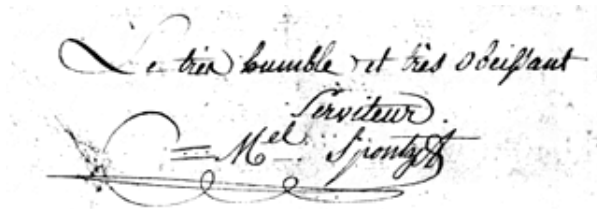 Le très humble et très obeissant
Serviteur.
= Mel. Spontzet